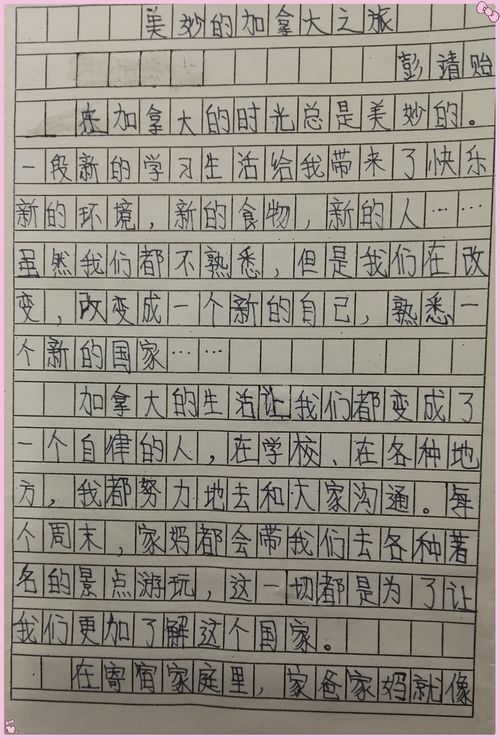 美妙的加拿大之旅
彭靖贻
在加拿大的时光总是美妙的。
一段新的学习生活给我带来了快乐
新的环境，新的食物，新的人……
虽然我们都不熟悉，但是我们在改
变，改变成一个新的自己，熟悉一
个新的国家……
加拿大的生活让我们都变成了
一个自律的人，在学校、在各种地
方，我都努力地去和大家沟通。每
个周末，家妈都会带我们去各种著
名的景点游玩，这一切都是为了让
我们更加了解这个国家。
在寄宿家庭里，家爸家妈就像